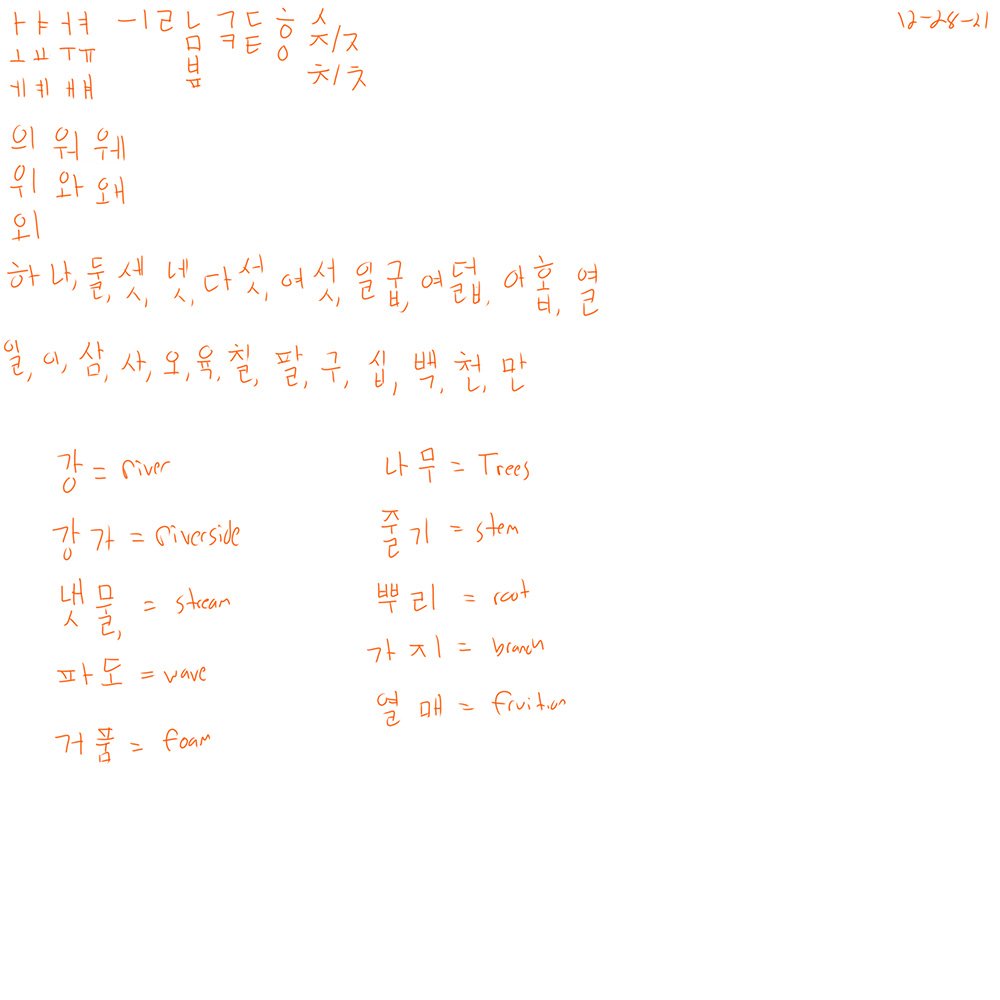 ㅏㅑㅓㅕ ㅡㅣㄹ 12-28-21
ㅗㅛㅜㅠ
ㅔㅖㅐㅒ
의 워 웨
위 와 왜
외
하나, 둘, 셋, 넷, 다섯, 여섯, 일굽, 여덟, 아홉, 열
일, 이, 삼, 사, 오, 육, 칠, 팔, 구, 십, 백, 천, 만
강 = river 나무 = Trees
강가 = riverside 줄기 = stem
냇물, = stream 뿌리 = root
파도 = wave 가지 = branch
거품 = foam 열매 = fruition